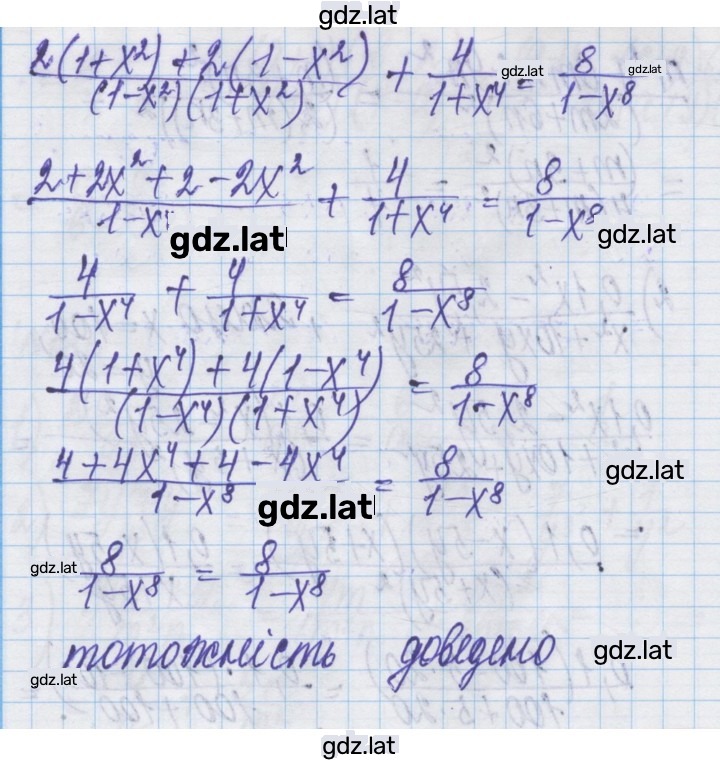 gdz.lat
2(1+x²)+2(1-x²)/(1-x²)(1+x²) + 4/1+x⁴ = 8/1-x⁸
gdz.lat gdz.lat
2+2x²+2-2x²/1-x + 4/1+x⁴ = 8/1-x⁸
gdz.lat gdz.lat
4/1-x⁴ + 4/1+x⁴ = 8/1-x⁸
4(1+x⁴)+4(1-x⁴)/(1-x⁴)(1+x⁴) = 8/1-x⁸
4+4x⁴+4-4x⁴/1-x⁸ = 8/1-x⁸
gdz.lat
gdz.lat
gdz.lat
8/1-x⁸ = 8/1-x⁸
тотожність доведено
gdz.lat
gdz.lat
gdz.lat